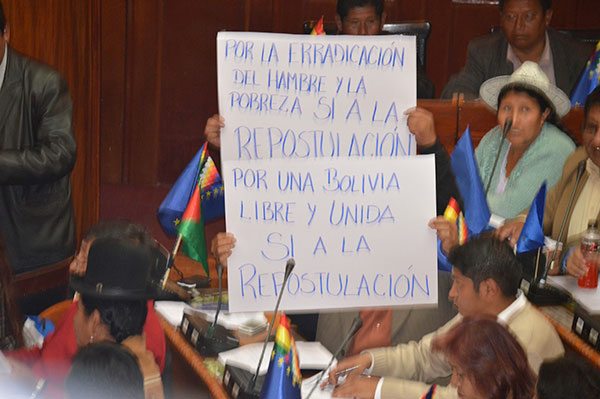 POR LA ERRADICACIÓN
DEL HAMBRE Y LA
POBREZA SI A LA
REPOSTULACIÓN
POR UNA BOLIVIA
LIBRE Y UNIDA
SI A LA
REPOSTULACIÓN